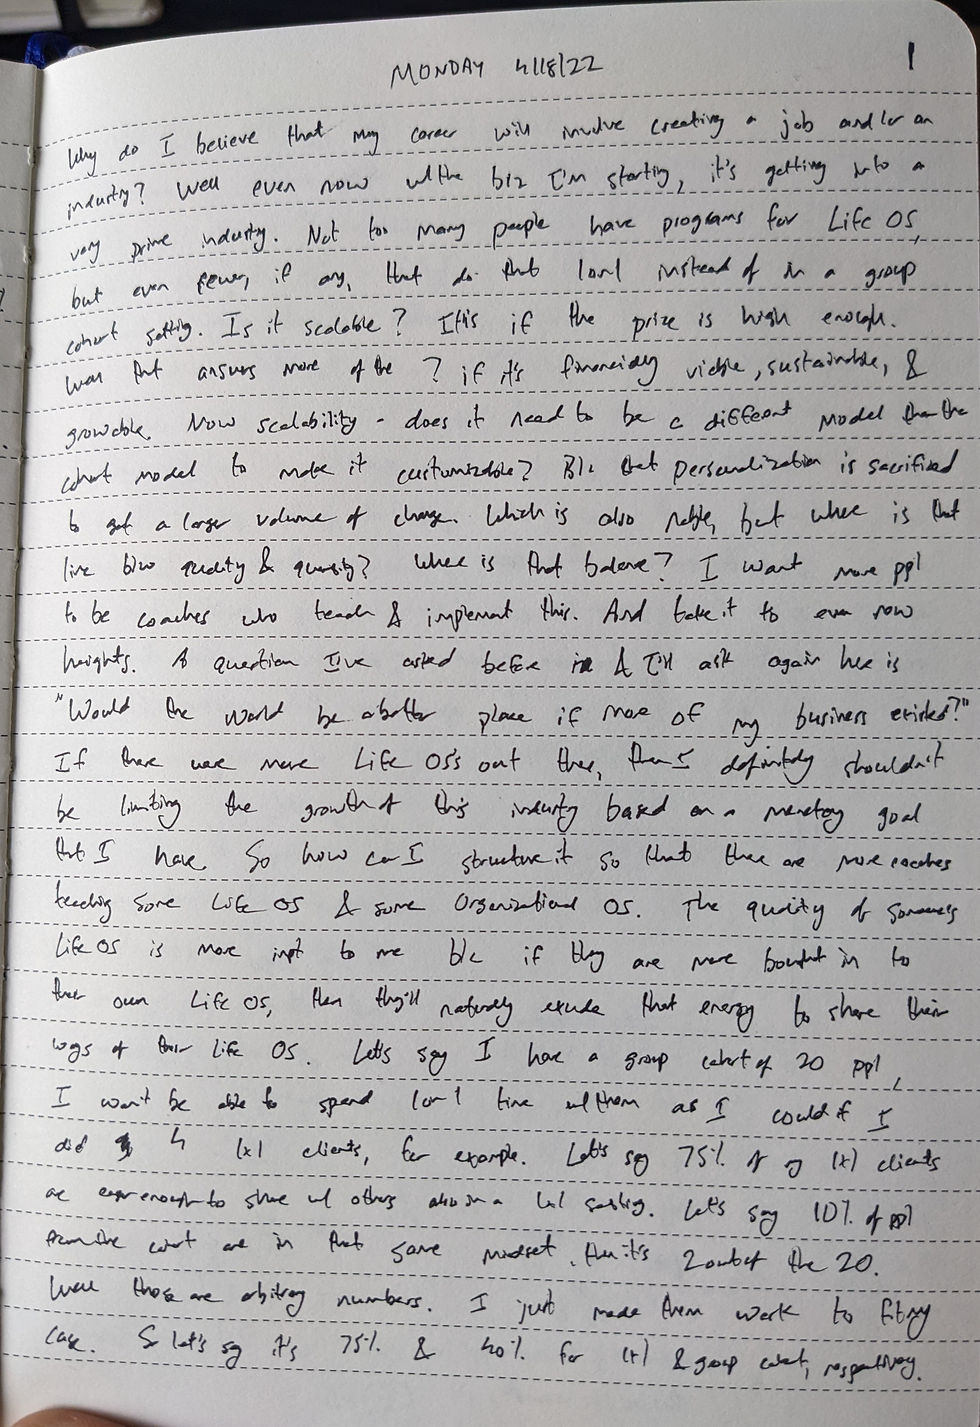 MONDAY 4/18/22
1
Why do I believe that my career will involve creating a job and/or an
industry? Well even now w/the biz I'm starting, it's getting into a
very prime industry. Not too many people have programs for Life OS,
but even fewer, if any, that do that 1on1 instead of in a group
cohort setting. Is it scalable? It is if the prize is high enough.
Well that answers more of the ? if it's financially viable, sustainable, &
growable. Now scalability - does it need to be a different model than the
cohort model to make it customizable? B/c that personalization is sacrificed
to get a larger volume of change. Which is also noble, but where is that
line b/w quality & quantity? Where is that balance? I want more ppl
to be coaches who teach & implement this. And take it to even new
heights. A question I've asked before & I'll ask again here is
"Would the world be a better place if more of my business existed?"
If there were more Life OS's out there, then I definitely shouldn't
be limiting the growth of this industry based on a monetary goal
that I have. So how can I structure it so that there are more coaches
teaching some Life OS & some Organizational OS. The quality of someone's
Life OS is more impt to me b/c if they are more bought in to
their own Life OS, then they'll naturally exude that energy to share their
ways of their Life OS. Let's say I have a group cohort of 20 ppl,
I won't be able to spend 1on1 time w/them as I could if I
did 4 1x1 clients, for example. Let's say 75% of my 1x1 clients
are eager enough to share w/ others also in a 1x1 setting. Let's say 10% of ppl
from the cohort are in that same mindset, then it's 2 out of the 20.
Well those are arbitrary numbers. I just made them work to fit my
case. So let's say it's 75% & 40% for 1x1 & group cohort, respectively.